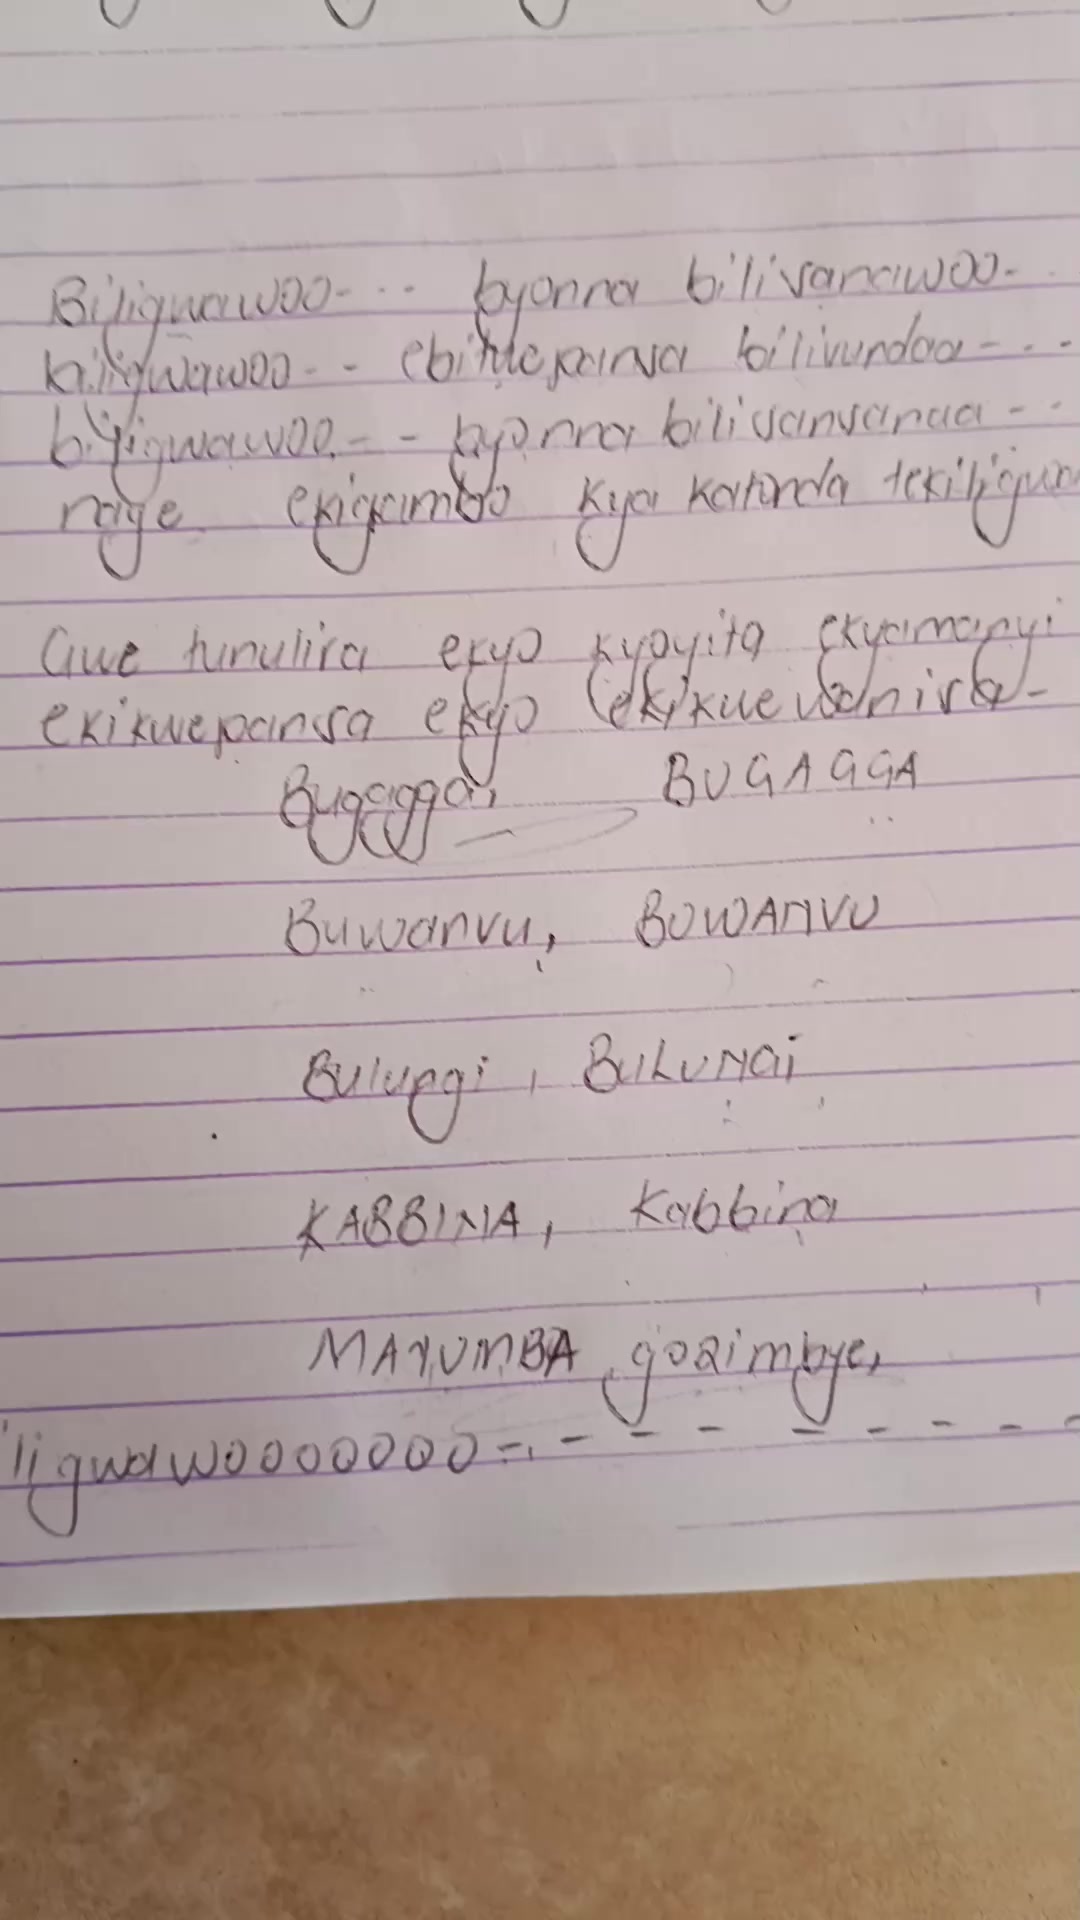 Biligwawoo-... byonna bilivaawoo-..
biligwawoo-- ebitwepansa bilivundaa---
biligwawoo.-- byonna bilivanvanua--
naye ekigambo kya katonda tekiligwa
Gwe tunulira ekyo kyoyita ekyamanyi
ekikwepansa ekyo (ekikwevvanisa-
Bugagga, BUGAGGA
Buwanvu, BUWANVU
Bulungi, BULUNGi
KABBINA, Kabbina
MAYUMBA gozimbye,
iligwawooooooo-.- - - - - - - -